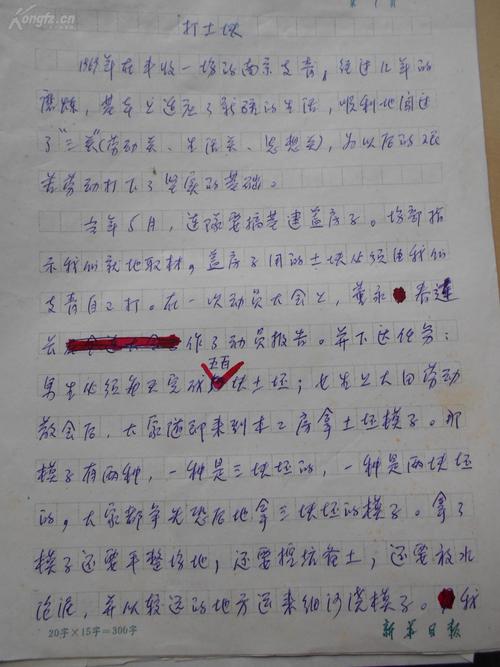 Kongfz.com
打土块
1965年在丰收一场的南京支青，经过几年的
磨炼，基本上适应了新疆的生活，顺利地闯过
了"三关"(劳动关、生活关、思想关)，为以后的艰
苦劳动打下了坚实的基础。
当年5月，连队要搞基建盖房子。场部指
示我们就地取材，盖房子用的土块必须由我们
支青自己打。在一次动员大会上，董永春连
长作了动员报告。并下达任务：
五百
男生必须每天完成块土坯；女生上大田劳动
散会后，大家随即来到木工房拿土坯模子。那
模子有两种，一种是三块坯的，一种是两块坯
的，大家都争先恐后地拿三块坯的模子。拿了
模子还要平整场地，还要挖坑备土；还要放水
泡泥，并从较远的地方运来细沙浇模子。我
20字×15字=300字
新华日报